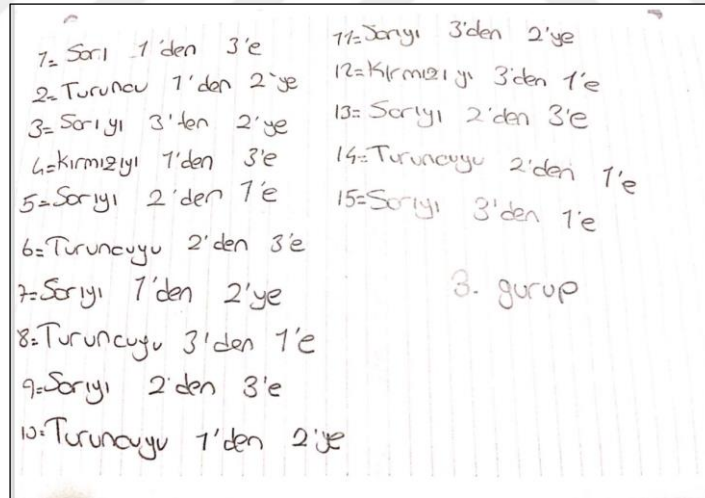 1= Sarı 1'den 3'e
2= Turuncu 1'den 2'ye
3= Sarıyı 3'den 2'ye
4= Kırmızıyı 1'den 3'e
5= Sarıyı 2'den 1'e
6= Turuncuyu 2'den 3'e
7= Sarıyı 1'den 2'ye
8= Turuncuyu 3'den 1'e
9= Sarıyı 2'den 3'e
10= Turuncuyu 1'den 2'ye
11= Sarıyı 3'den 2'ye
12= Kırmızıyı 3'den 1'e
13= Sarıyı 2'den 3'e
14= Turuncuyu 2'den 1'e
15= Sarıyı 3'den 1'e
3. gurup